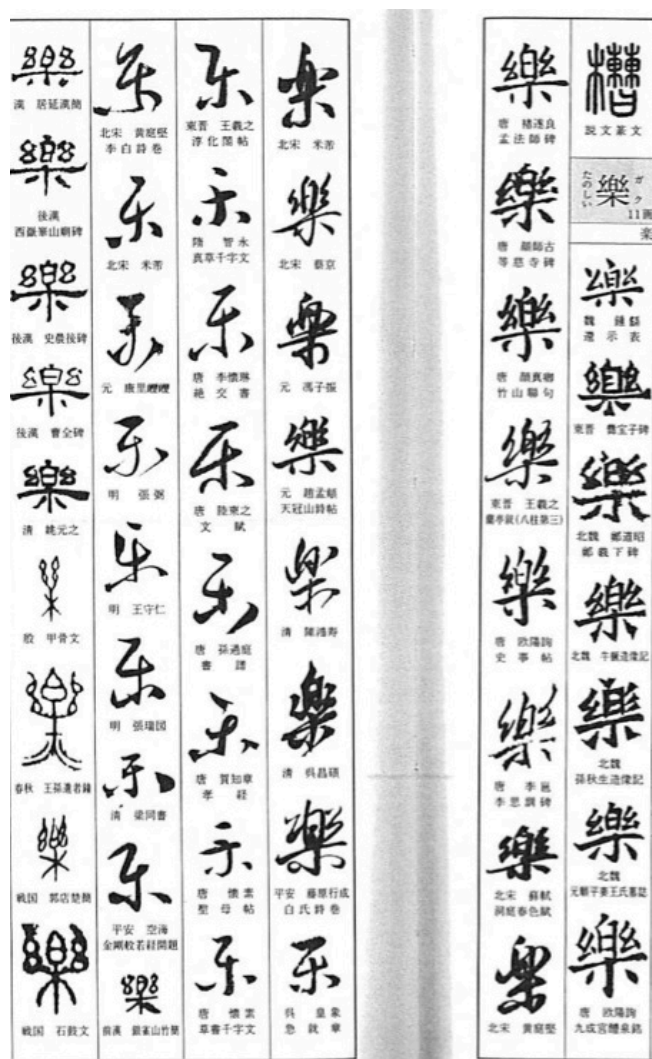 槽
説文篆文
ガク
樂
たのしい
11画
楽
樂
魏 鍾繇
還示表
樂
東晋 爨宝子碑
樂
北魏 鄭道昭
鄭羲下碑
樂
北魏 牛橛造像記
樂
北魏
孫秋生造像記
樂
北魏
元顥平妻王氏墓誌
樂
唐 欧陽詢
九成宮醴泉銘
樂
唐 褚遂良
孟法師碑
樂
唐 顔師古
等慈寺碑
樂
唐 顔真卿
竹山聯句
樂
東晋 王羲之
蘭亭叙(八柱第三)
樂
唐 欧陽詢
史事帖
樂
唐 李邕
李思訓碑
樂
北宋 蘇軾
洞庭春色賦
樂
北宋 黄庭堅
楽
北宋 米芾
樂
北宋 蔡京
樂
元 馮子振
樂
元 趙孟頫
天冠山詩帖
樂
清 陳鴻寿
樂
清 呉昌碩
樂
平安 藤原行成
白氏詩巻
乐
呉 皇象
急就章
乐
東晋 王羲之
淳化閣帖
乐
隋 智永
真草千字文
乐
唐 李懐琳
絶交書
乐
唐 陸柬之
文賦
乐
唐 孫過庭
書譜
乐
唐 賀知章
孝経
乐
唐 懐素
聖母帖
乐
唐 懐素
草書千字文
乐
北宋 黄庭堅
李白詩巻
乐
北宋 米芾
乐
元 康里巎巎
乐
明 張弼
乐
明 王守仁
乐
明 張瑞図
乐
清 梁同書
乐
平安 空海
金剛般若経開題
樂
前漢 銀雀山竹簡
樂
漢 居延漢簡
樂
後漢
西嶽華山廟碑
樂
後漢 史晨後碑
樂
後漢 曹全碑
樂
清 姚元之
樂
殷 甲骨文
樂
春秋 王孫遺者鐘
樂
戦国 郭店楚簡
樂
戦国 石鼓文